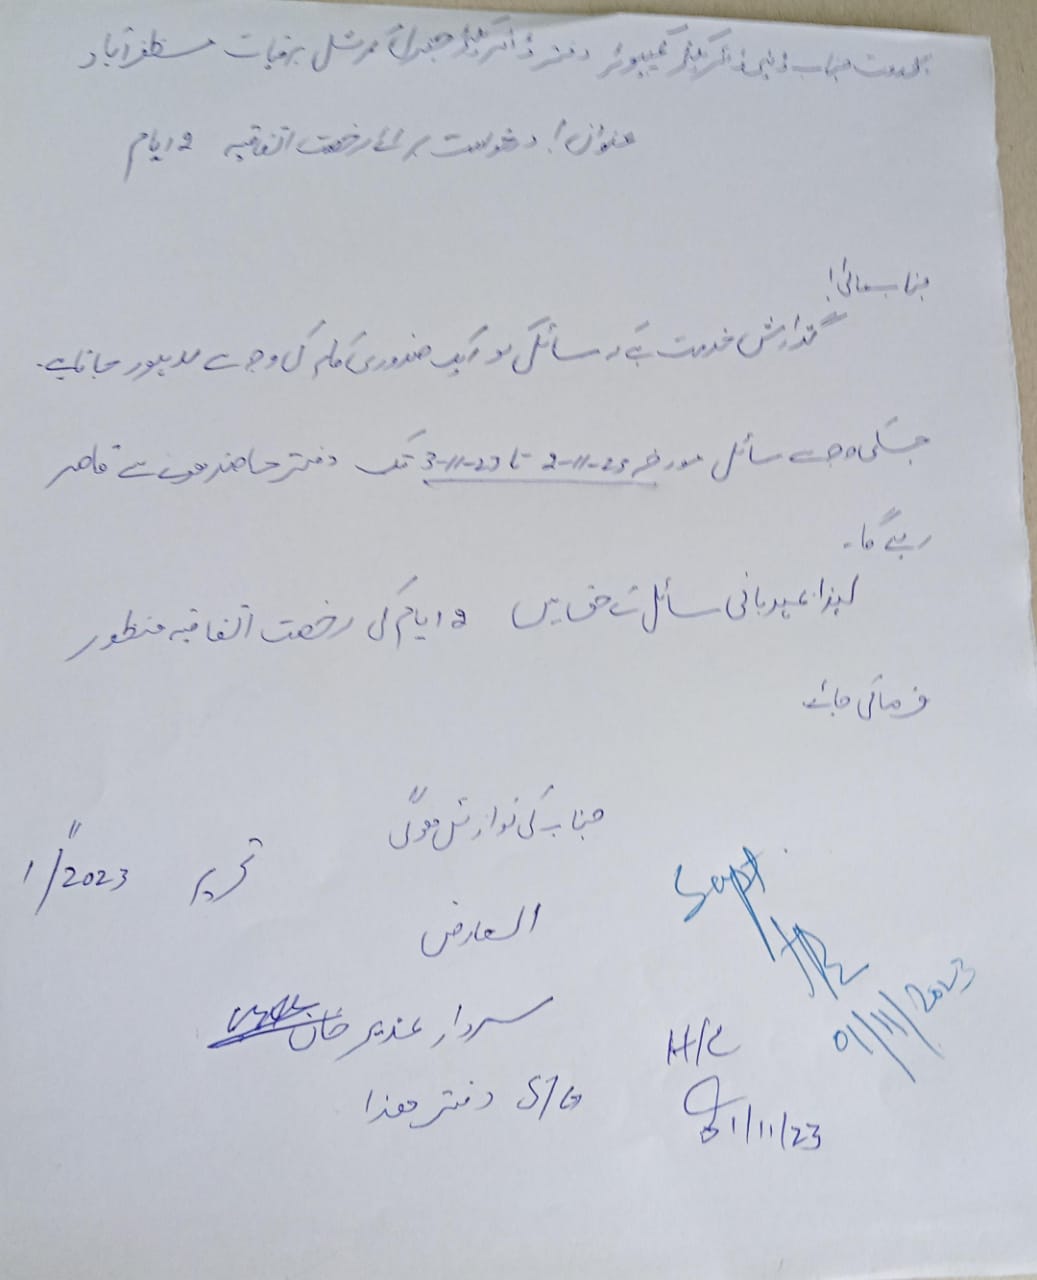 بخدمت جناب ڈپٹی ڈائریکٹر کمپیوٹر دفتر ڈائریکٹر جنرل کمرشل برقیات مظفرآباد
عنوان! درخواست برائے رخصت اتفاقیہ 2 ایام
جناب عالی!
گذارش خدمت ہے کہ سائل کو ایک ضروری کام کی وجہ سے میرپور جانا ہے۔
جسکی وجہ سے سائل مورخہ 2-11-23 تا 3-11-23 تک دفتر حاضر ہونے سے قاصر
رہے گا۔
لہذا مہربانی سائل کے حق میں 2 ایام کی رخصت اتفاقیہ منظور
فرمائی جائے
جناب کی نوازش ہوگی
تحریر 1/11/2023
العارض
سردار عذیر خان
S/G دفتر ھذا
Supt
01/11/2023
H/C
01/11/23